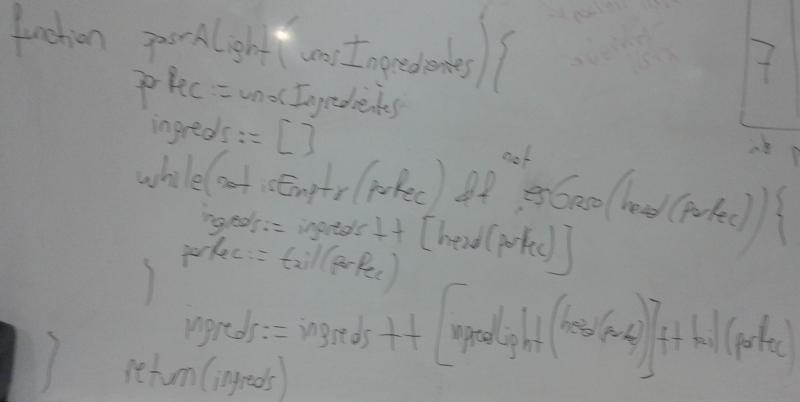 function pasrALight(unosIngredientes){
porRec := unosIngredientes
ingreds := []
not
while(not isEmpty(porRec) && esGraso(head(porRec)){
ingreds := ingreds ++ [head(porRec)]
porRec := tail(porRec)
}
ingreds := ingreds ++ [ingredLight(head(porRec))] ++ tail(porRec)
return(ingreds)
}
7